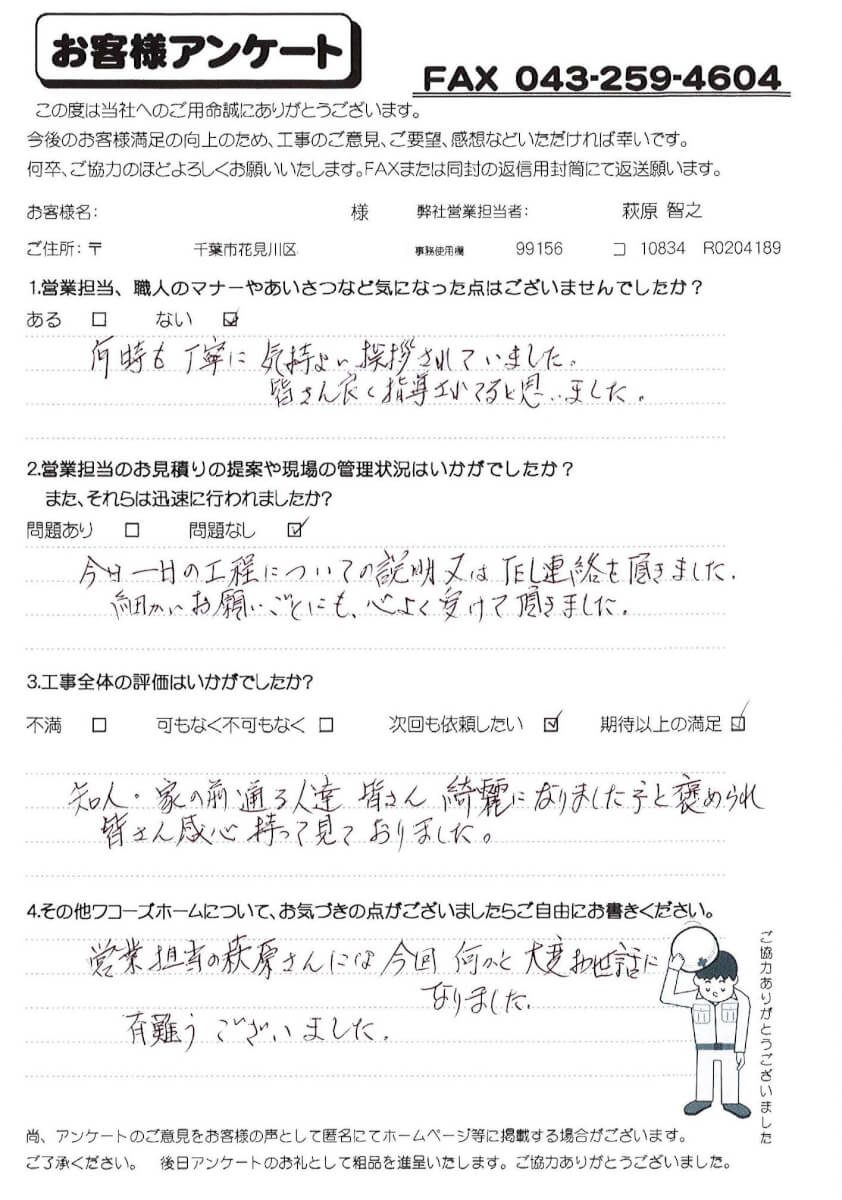 お客様アンケート
FAX 043-259-4604
この度は当社へのご用命誠にありがとうございます。
今後のお客様満足の向上のため、工事のご意見、ご要望、感想などいただければ幸いです。
何卒、ご協力のほどよろしくお願いいたします。FAXまたは同封の返信用封筒にて返送願います。
お客様名: 様 弊社営業担当者: 萩原 智之
ご住所: 〒 千葉市花見川区 事務使用欄 99156 コ 10834 R0204189
1.営業担当、職人のマナーやあいさつなど気になった点はございませんでしたか?
ある □ ない ☑
何時も丁寧に気持よい挨拶されていました。
皆さん良く指導されてると思いました。
2.営業担当のお見積りの提案や現場の管理状況はいかがでしたか?
また、それらは迅速に行われましたか?
問題あり □ 問題なし ☑
今日一日の工程についての説明又はTEL連絡を頂きました.
細かいお願いごとにも、心よく受けて頂きました.
3.工事全体の評価はいかがでしたか?
不満 □ 可もなく不可もなく □ 次回も依頼したい ☑ 期待以上の満足 ☑
知人・家の前通る人達 皆さん 綺麗になりました子と褒められ
皆さん感心持って見ておりました。
4.その他ワコーズホームについて、お気づきの点がございましたらご自由にお書きください。
営業担当の萩原さんには今回 何かと 大変お世話に
なりました.
有難うございました.
ご協力ありがとうございました
尚、アンケートのご意見をお客様の声として匿名にてホームページ等に掲載する場合がございます。
ご了承ください。 後日アンケートのお礼として粗品を進呈いたします。ご協力ありがとうございました。